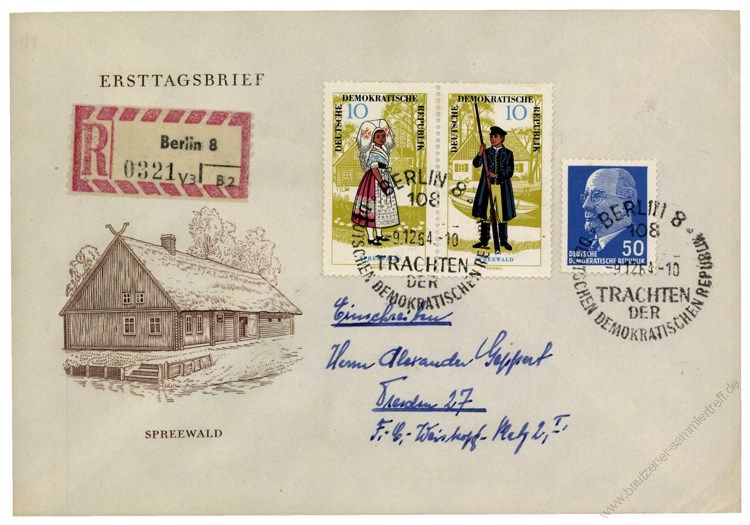 ERSTTAGSBRIEF
R
Berlin 8
0321 V3
B2
10
DEUTSCHE DEMOKRATISCHE REPUBLIK
SPREEWALD
10
DEUTSCHE DEMOKRATISCHE REPUBLIK
SPREEWALD
BERLIN 8
108
-9.12.64.-10
TRACHTEN
DER
DEUTSCHEN DEMOKRATISCHEN RE
50
DEUTSCHE
DEMOKRATISCHE REPUBLIK
BERLIN 8
108
-9.12.64.-10
TRACHTEN
DER
DEUTSCHEN DEMOKRATISCHEN REPUBLIK
Einschreiben
Herrn Alexander Geppert
Dresden 27
F.-C.-Weiskopf-Platz 2, I
SPREEWALD
www.bautzener-sammlertreff.de